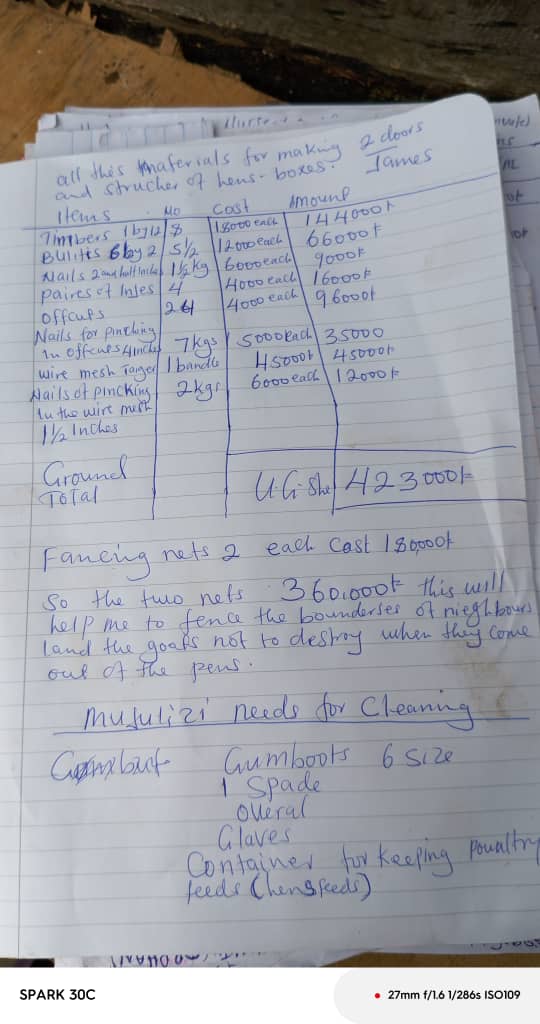 all this materials for making 2 doors
and strucher of hens-boxes. James
Items No Cost Amount
Timbers 1 by 12 8 18000 each 144000/=
6 by 2 5 1/2 12000 each 66000/=
Nails 2 and half Inches 1 1/2 kg 6000 each 9000/=
Paires of Injes 4 4000 each 16000/=
offcuts 24 4000 each 96000/=
Nails for pinching
In offcuts 4 Inches 7kgs 5000 each 35000
wire mesh 1 bandle 45000/= 45000/=
Nails of pincking 2kgs 6000 each 12000/=
In the wire mesh
1 1/2 Inches
Ground
Total U.G.Shs 423000/=
Fancing nets 2 each cost 180,000/=
So the two nets 360,000/= this will
help me to fence the bounderses of nieghbours
land the goats not to destroy when they come
out of the pens.
Musulizi needs for Cleaning
Gumboots 6 size
1 Spade
overal
Glaves
Container for keeping poualtry
feeds (hens feeds)
SPARK 30C
27mm f/1.6 1/286s ISO109